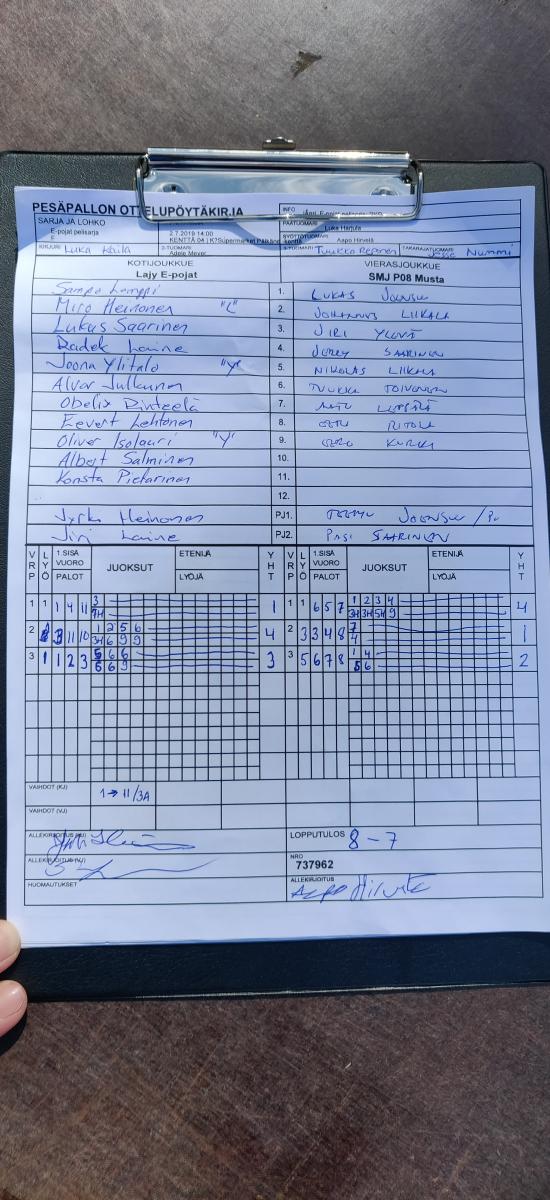 PESÄPALLON OTTELUPÖYTÄKIRJA
INFO
SARJA JA LOHKO
E-pojat pelisarja
2.7.2019 14:00
KENTTÄ 04 | K7Supermarket
PÄÄTUOMARI
Luka Harjula
SYÖTTÖTUOMARI
Aapo Hirvelä
KIRJURI Luka Keila
2-TUOMARI
Adele Meyer
3-TUOMARI Tuukka Reponen
TAKARAJATUOMARI Nummi
KOTIJOUKKUE
Lajy E-pojat
VIERASJOUKKUE
SMJ P08 Musta
Sampo Lamppi 1. LUKAS JOENSUU
Miro Heinonen "L" 2. JOHANNES LIIKALA
Lukas Saarinen 3. JIRI YLEVÄ
Radek Laine 4. JEREY SAARINEN
Joona Ylitalo "Y" 5. NIKOLAS LIIKALA
Alvar Julkunen 6. TUUKKA TOIVONEN
Obelix Rinteelä 7. LEPPÄLÄ
Eevert Lehtonen 8. EETU RITOLA
Oliver Isolauri "Y" 9. EERO KURKI
Albert Salminen 10.
Konsta Pietarinen 11.
12.
Jyrki Heinonen PJ1. TEEMU JOENSUU
Jiri Laine PJ2. PASI SAARINEN
VRP LYÖ 1.SISÄ VUORO PALOT JUOKSUT ETENIJÄ LYÖJÄ YHT VRP LYÖ 1.SISÄ VUORO PALOT JUOKSUT ETENIJÄ LYÖJÄ YHT
1 1 1 4 11 3 1 1 1 6 5 7 1 2 3 4 4
2 3 11 10 1 2 5 6 4 2 3 3 4 8 7 1
6 9 9 4
3 1 1 2 3 5 6 6 3 3 5 6 7 8 1 4 2
5 6 9 5 6
VAIHDOT (KJ) 1→11/3A
VAIHDOT (VJ)
ALLEKIRJOITUS (KJ)
LOPPUTULOS 8-7
ALLEKIRJOITUS (VJ)
NRO
737962
HUOMAUTUKSET
ALLEKIRJOITUS
Aapo Hirvelä